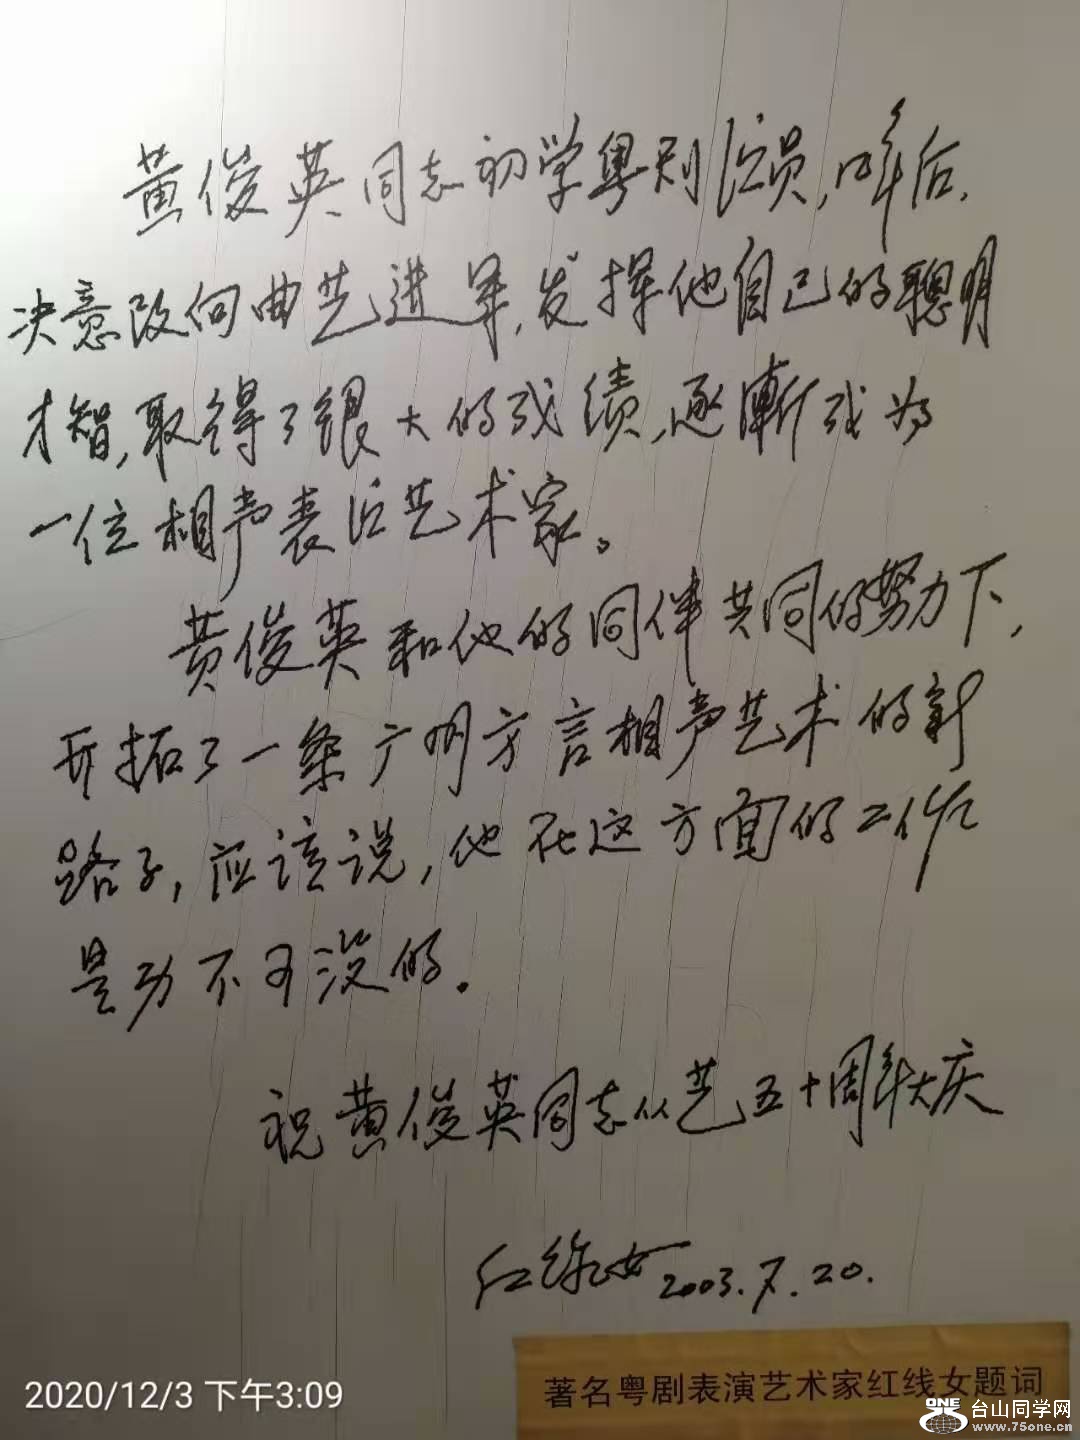 黄俊英同志初学粤剧演员,四年后,
决意改向曲艺进军,发挥他自己的聪明
才智,取得了很大的成绩,逐漸成为
一位相声表演艺术家。
黄俊英和他的同伴共同的努力下,
开拓了一条广州方言相声艺术的新
路子,应该说,他在这方面的工作
是功不可没的。
祝黄俊英同志从艺五十周年大庆
红线女 2003.7.20.
著名粤剧表演艺术家红线女题词
2020/12/3 下午3:09
ONE 台山同学网
www.75one.cn